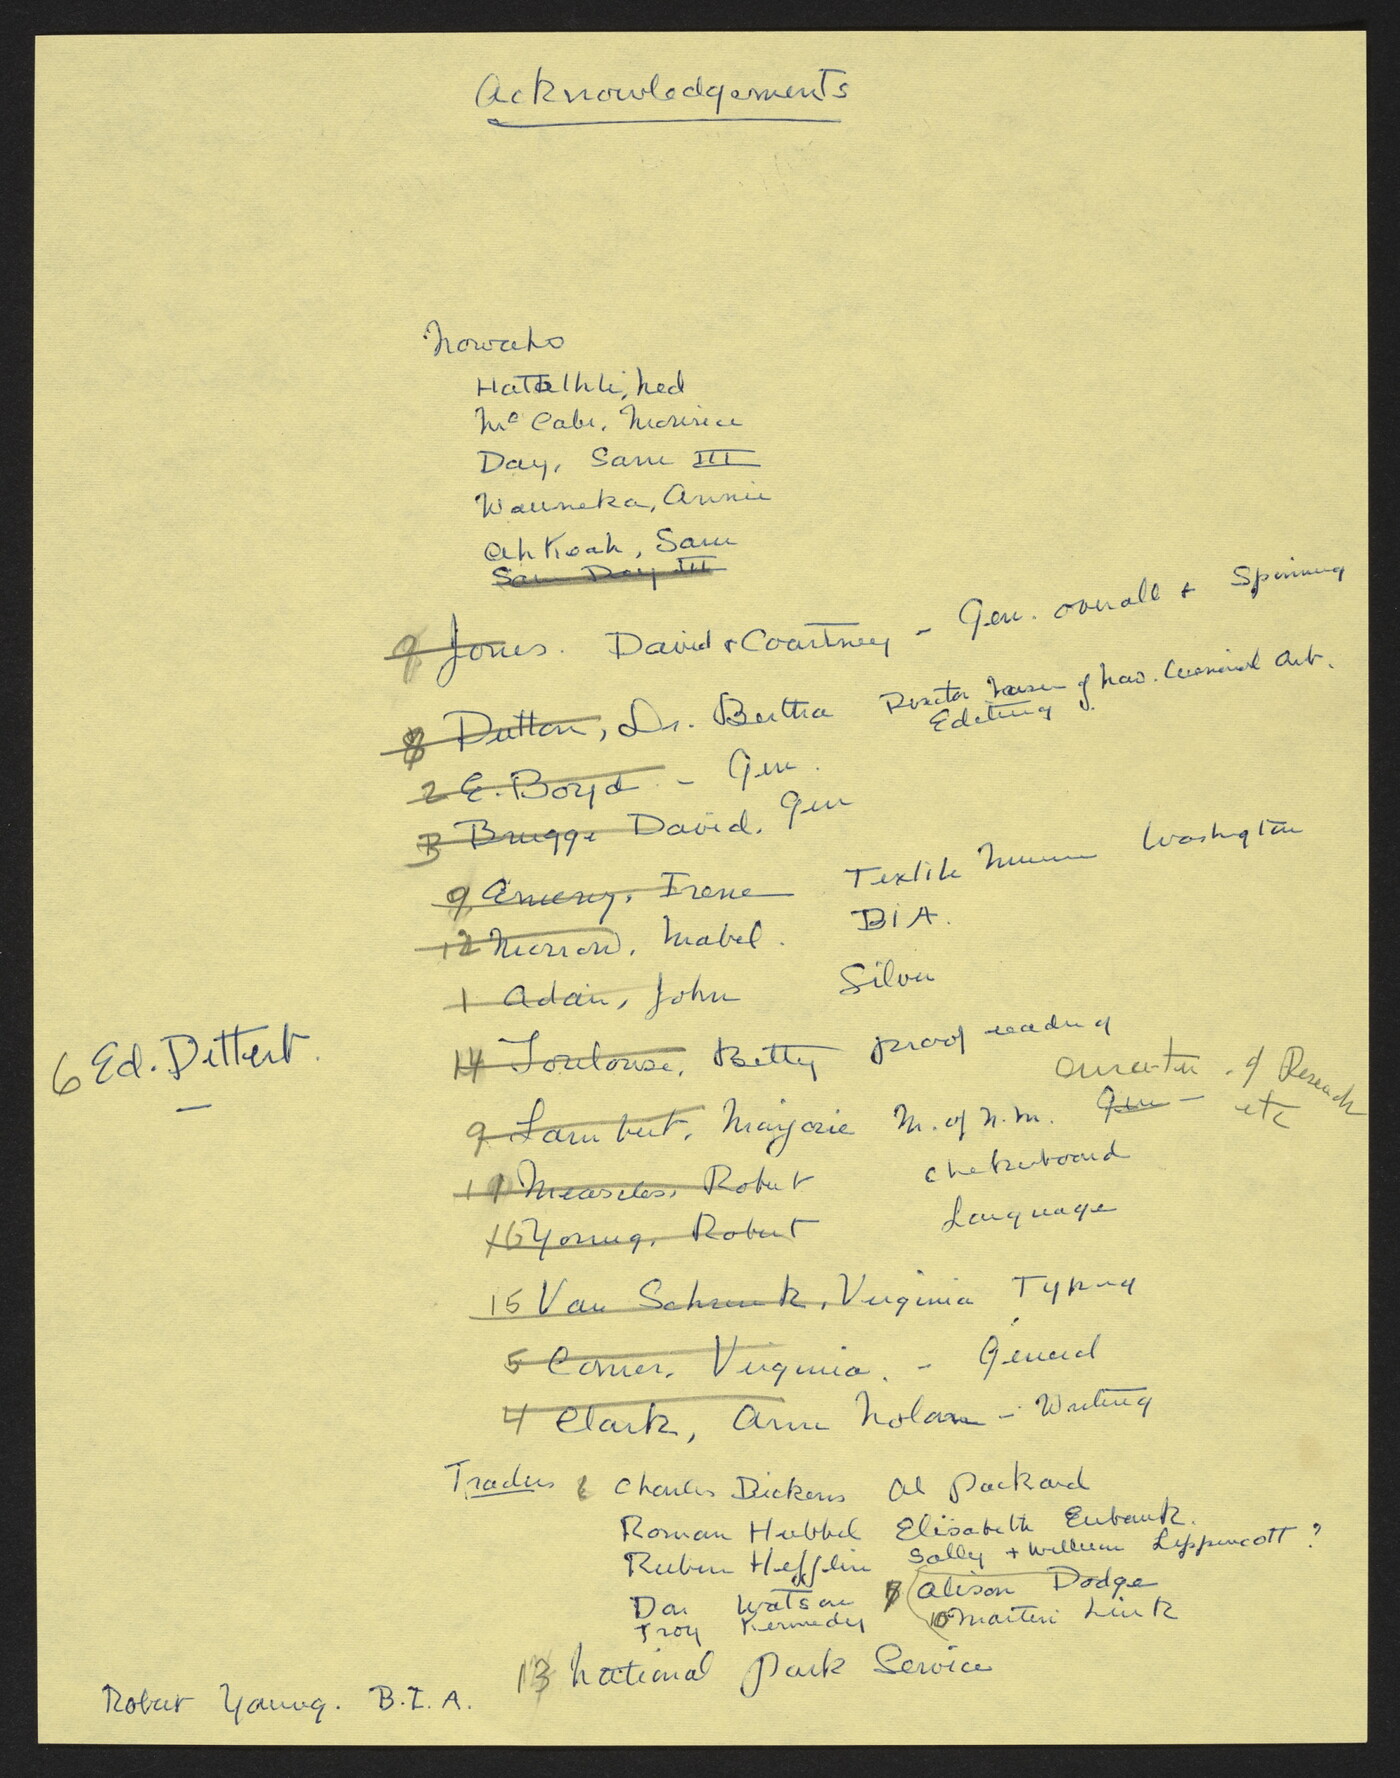 Acknowledgements
Navaho
Hatathli, Ned
McCabe, Maurice
Day, Sam III
Wauneka, Annie
Ahkeah, Sam
Sam Day III
9 Jones. David & Courtney - Gen. overall + Spinning
8 Dutton, Dr. Bertha Director Museum of Nav. Ceremonial Art.
Editing
2 E. Boyd - Gen.
3 Brugge David. Gen
9 Emery, Irene Textile Museum Washington
12 Morrow, Mabel. BIA.
1 Adair, John Silver
6 Ed. Dittert.
14 Toulouse, Betty proof reading
Curator of Research
9 Lambert, Marjorie M. of N.M. Gen - etc
11 Measeles, Robert checkerboard
16 Young, Robert Language
15 Van Schrenk, Virginia Typing
5 Comer, Virginia. - General
4 Clark, Ann Nolan - Writing
Traders Charles Dickens Al Packard
Roman Hubbel Elisabeth Eubank.
Ruben Hefflin Sally + William Lippincott?
Don Watson 7 Alison Dodge
Troy Kennedy 10 Martin Link
13 National Park Service
Robert Young. B.I.A.